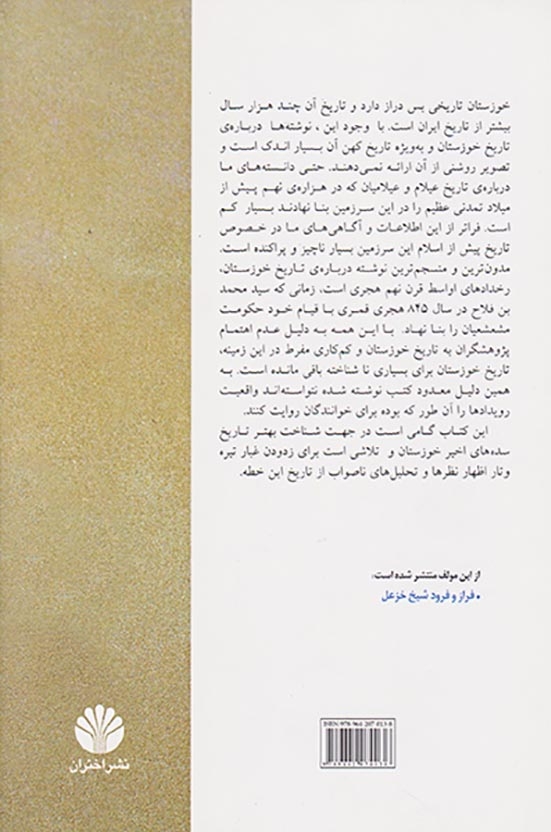 خوزستان تاریخی بس دراز دارد و تاریخ آن چند هزار سال
بیشتر از تاریخ ایران است. با وجود این ، نوشته‌ها درباره‌ی
تاریخ خوزستان و به‌ویژه تاریخ کهن آن بسیار اندک است و
تصویر روشنی از آن ارائه نمی‌دهند. حتی دانسته‌های ما
درباره‌ی تاریخ عیلام و عیلامیان که در هزاره‌ی نهم پیش از
میلاد تمدنی عظیم را در این سرزمین بنا نهادند بسیار کم
است. فراتر از این اطلاعات و آگاهی‌های ما در خصوص
تاریخ پیش از اسلام این سرزمین بسیار ناچیز و پراکنده است.
مدون‌ترین و منسجم‌ترین نوشته درباره‌ی تاریخ خوزستان،
رخدادهای اواسط قرن نهم هجری است، زمانی که سید محمد
بن فلاح در سال ۸۴۵ هجری قمری با قیام خود حکومت
مشعشعیان را بنا نهاد. با این همه به دلیل عدم اهتمام
پژوهشگران به تاریخ خوزستان و کم‌کاری مفرط در این زمینه،
تاریخ خوزستان برای بسیاری نا شناخته باقی مانده است. به
همین دلیل معدود کتب نوشته شده نتواسته‌اند واقعیت
رویدادها را آن طور که بوده برای خوانندگان روایت کنند.
این کتاب گامی است در جهت شناخت بهتر تاریخ
سده‌های اخیر خوزستان و تلاشی است برای زدودن غبار تیره
وتار اظهار نظرها و تحلیل‌های ناصواب از تاریخ این خطه.
از این مولف منتشر شده است:
• فراز و فرود شیخ خزعل
ISBN 978-964-207-013-8
نشر اختران